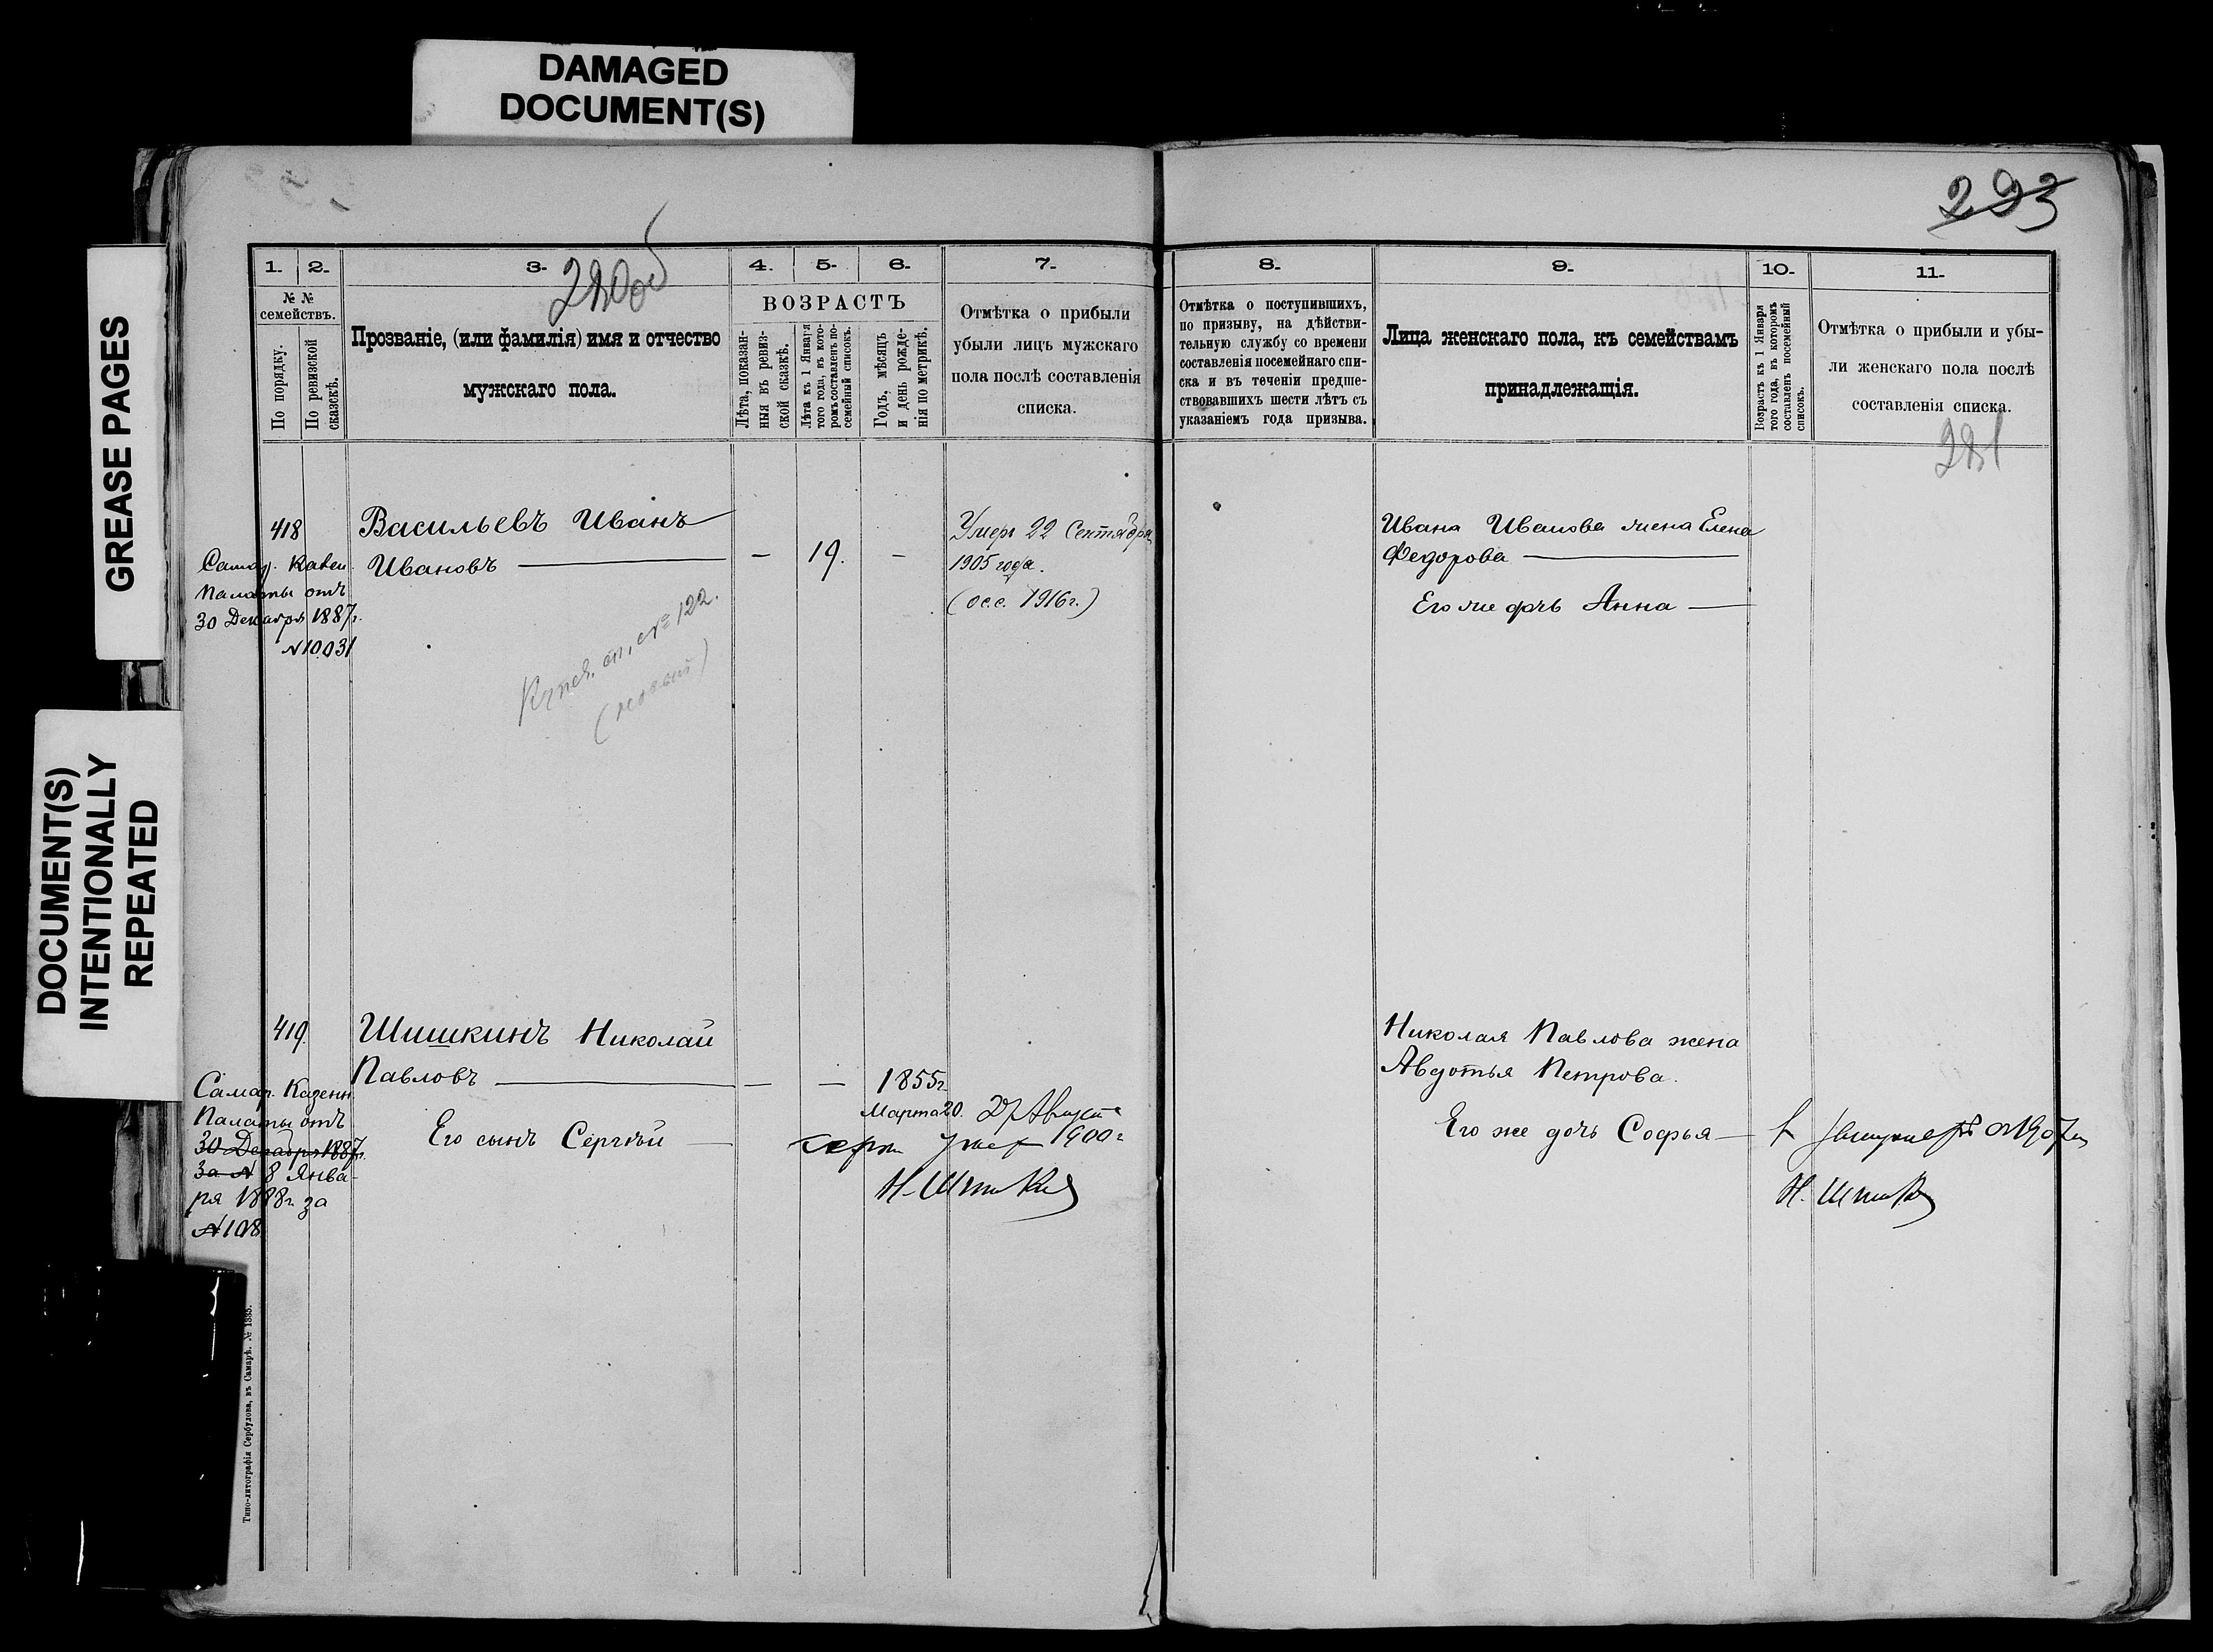 DAMAGED
DOCUMENT(S)
GREASE PAGES
DOCUMENT(S)
INTENTIONALLY
REPEATED
293
280об
1. 2. 3. 4. 5. 6. 7.
№ №
семействъ.
По порядку.
По ревизской
сказскѣ.
Прозваніе, (или фамилія) имя и отчество
мужскаго пола.
ВОЗРАСТЪ
Лѣта, показан-
ныя въ ревиз-
ской сказкѣ.
Лѣта къ 1 Января
того года, въ кото-
ромъ составленъ по-
семейный списокъ.
Годъ, мѣсяцъ
и день рожде-
нія по метрикѣ.
Отмѣтка о прибыли
убыли лицъ мужскаго
пола послѣ составленія
списка.
418
Самар. Казен.
Палаты отъ
30 Декабря 1887г.
№10031
Васильевъ Иванъ
Ивановъ — — 19. —
Умеръ 22 Сентября
1905 года.
(ос.с. 1916г.)
№ 122.
419
Самар. Казенн.
Палаты отъ
30 Декабря 1887г.
за № 8 Янва-
ря 1888г. за
№108
Шишкинъ Николай
Павловъ — — — 1855г.
Марта 20.
Его сынъ Сергѣй —
Августа
1900г
Типо-литографія Сербулова, въ Самарѣ. № 1385.
8. 9. 10. 11.
Отмѣтка о поступившихъ,
по призыву, на дѣйстви-
тельную службу со времени
составленія посемейнаго спи-
ска и въ теченіи предше-
ствовавшихъ шести лѣтъ съ
указаніемъ года призыва.
Лица женскаго пола, къ семействамъ
принадлежащія.
Возрастъ къ 1 Января
того года, въ которомъ
составленъ посемейный
списокъ.
Отмѣтка о прибыли и убы-
ли женскаго пола послѣ
составленія списка.
281
Ивана Иванова жена Елена
Федорова —
Его же дочь Анна —
Николая Павлова жена
Авдотья Петрова.
Его же дочь Софья —